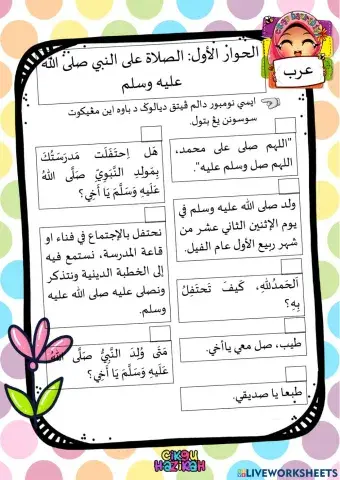 الحوار الأول: الصلاة على النبي صلى الله
عليه وسلم
عرب
ايسي نومبور دالم ڤيتق ديالوݢ د باوه اين مڠيكوت
سوسونن يڠ بتول.
"اللهم صلى على محمد،
اللهم صل وسلم عليه".
هَل اِحتَفَلَت مَدرَسَتُكَ
بِمَولِدِ النَّبَوِيِّ صَلَّى اللهُ
عَلَيهِ وَسَلَّمَ يَا أَخِي؟
ولد صلى الله عليه وسلم في
يوم الإثنين الثاني عشر من
شهر ربيع الأول عام الفيل.
نحتفل بالإجتماع في فناء او
قاعة المدرسة، نستمع فيه
إلى الخطبة الدينية ونتذكر
ونصلى عليه صلى الله عليه
وسلم.
اَلحَمدُللهِ، كَيفَ تَحتَفِلُ
بِهِ؟
مَتَى وُلِدَ النَّبِيُّ صَلَّى اللهُ
عَلَيهِ وَسَلَّمَ يَا أَخِي؟
طيب، صل معي ياأخي.
طبعا يا صديقي.
Cikgu
Hazikah
LIVEWORKSHEETS